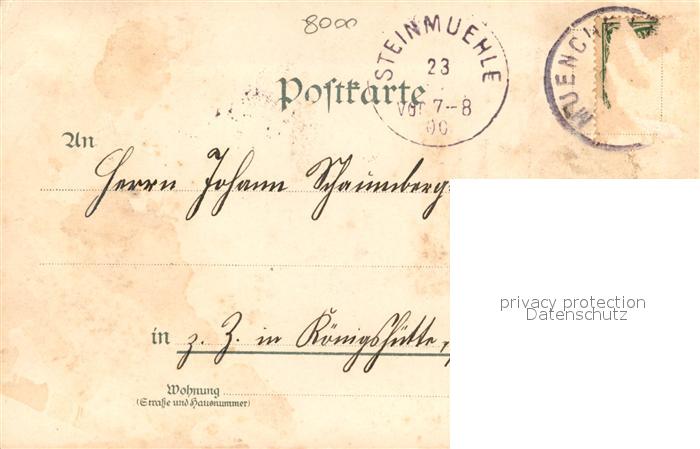 8000
STEINMUEHLE
23
Vor 7-8
00
MUENCHE
Postkarte
An
Herrn Johann Schaumberg
privacy protection
Datenschutz
in z. Z. in Königshütte,
Wohnung
(Straße und Hausnummer)